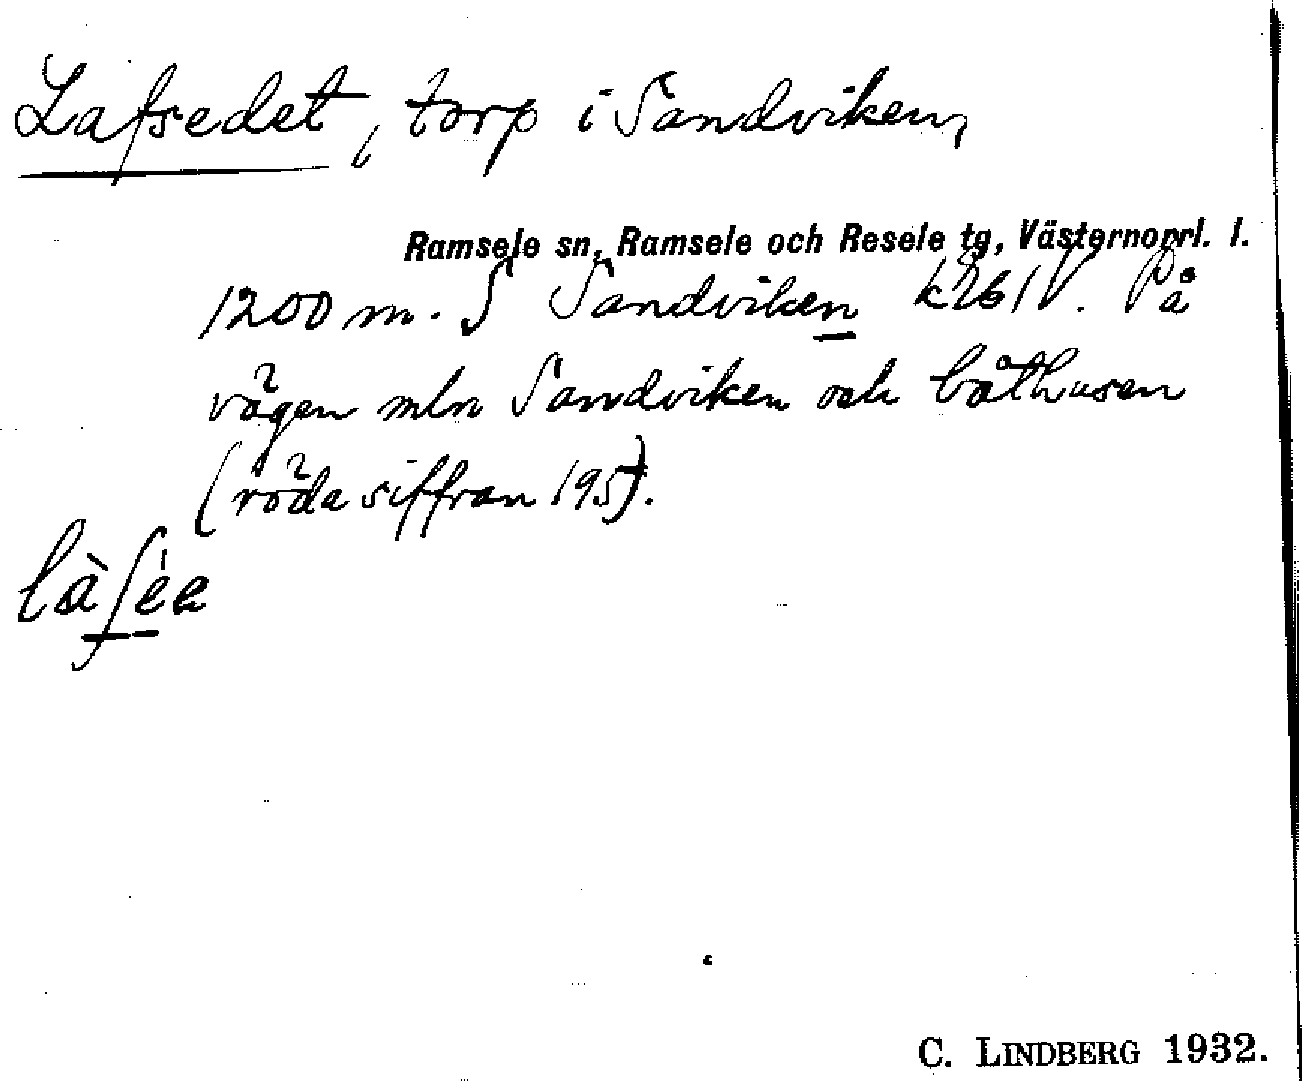 Lafsedet, torp i Sandviken,
Ramsele sn, Ramsele och Resele tg, Västernorrl. l.
1200 m. S Sandviken k 26 IV. På
vägen mln Sandviken och båthusen
(röda siffran 195).